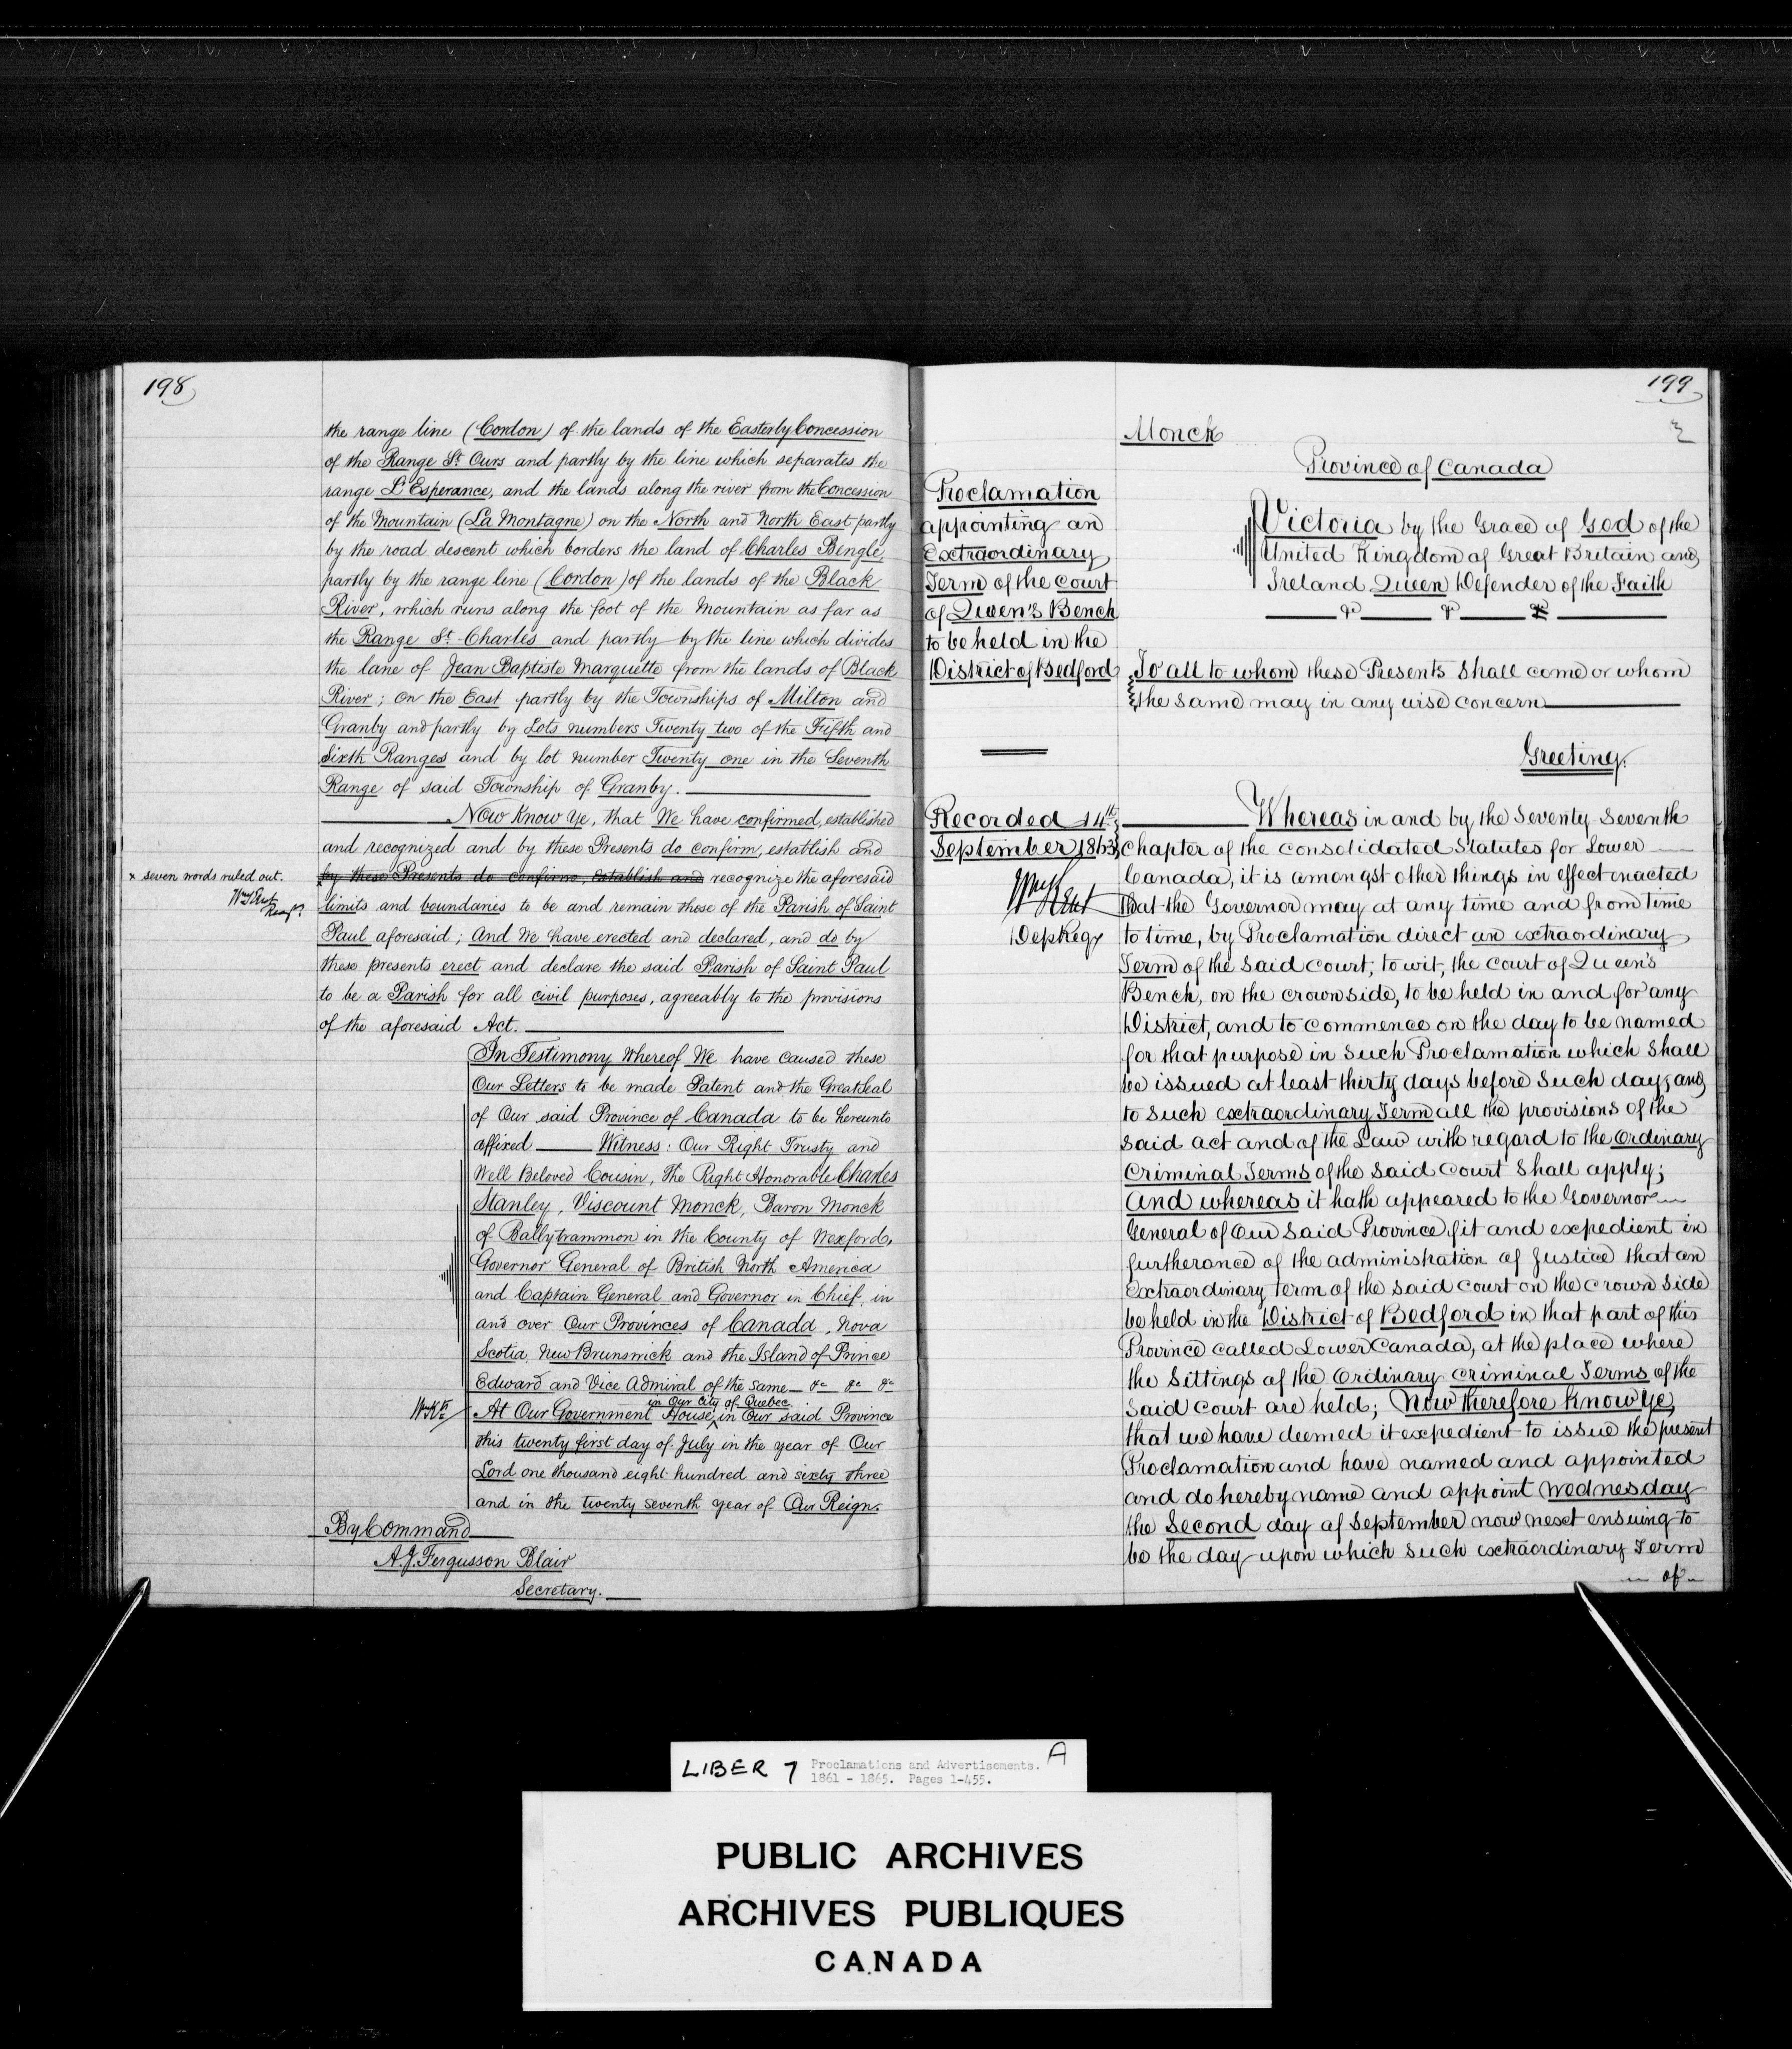 198
the range line (Cordon) of the lands of the Easterly Concession
of the Range St. Ours and partly by the line which separates the
range L'Esperance, and the lands along the river from the Concession
of the Mountain (La Montagne) on the North and North East partly
by the road descent which borders the land of Charles Bengle,
partly by the range line (Cordon) of the lands of the Black
River, which runs along the foot of the Mountain as far as
the Range St. Charles and partly by the line which divides
the lane of Jean Baptiste Marquette from the lands of Black
River; on the East partly by the Townships of Milton and
Granby and partly by Lots numbers Twenty two of the Fifth and
Sixth Ranges and by lot number Twenty one in the Seventh
Range of said Township of Granby.
Now Know Ye, that We have confirmed, established
and recognized and by these Presents do confirm, establish and
by these Presents do confirm, establish and recognize the aforesaid
x seven words ruled out.
limits and boundaries to be and remain those of the Parish of Saint
Paul aforesaid; And We have erected and declared, and do by
these presents erect and declare the said Parish of Saint Paul
to be a Parish for all civil purposes, agreeably to the provisions
of the aforesaid Act.
In Testimony Whereof We have caused these
Our Letters to be made Patent and the Great Seal
of Our said Province of Canada to be hereunto
affixed Witness: Our Right Trusty and
Well Beloved Cousin, The Right Honorable Charles
Stanley, Viscount Monck, Baron Monck
of Ballytrammon in the County of Wexford,
Governor General of British North America
and Captain General and Governor in Chief, in
and over Our Provinces of Canada, Nova
Scotia, New Brunswick and the Island of Prince
Edward and Vice Admiral of the same &c &c &c
in Our City of Quebec
At Our Government House, in Our said Province
this twenty first day of July in the year of Our
Lord one thousand eight hundred and sixty three
and in the twenty seventh year of Our Reign.
By Command
A.J. Fergusson Blair
Secretary.
199
Monck
Province of Canada
Proclamation
appointing an
Extraordinary
Term of the Court
of Queen's Bench
to be held in the
District of Bedford
Victoria by the Grace of God of the
United Kingdom of Great Britain and
Ireland Queen Defender of the Faith
&c &c &c
To all to whom these Presents shall come or whom
the same may in any wise concern
Greeting.
Recorded 14th
September 1863
Dep Regr
Whereas in and by the Seventy Seventh
Chapter of the Consolidated Statutes for Lower
Canada, it is amongst other things in effect enacted
that the Governor may at any time and from time
to time, by Proclamation direct an extraordinary
Term of the said Court; to wit, the Court of Queen's
Bench, on the crown side, to be held in and for any
District, and to commence on the day to be named
for that purpose in such Proclamation which shall
be issued at least thirty days before such day; and
to such extraordinary Term all the provisions of the
said act and of the Law with regard to the Ordinary
Criminal Terms of the said Court shall apply;
And whereas it hath appeared to the Governor
General of Our said Province, fit and expedient in
furtherance of the administration of Justice that an
Extraordinary Term of the said Court on the Crown side
be held in the District of Bedford in that part of this
Province called Lower Canada, at the place where
the Sittings of the Ordinary Criminal Terms of the
said Court are held; Now therefore Know Ye,
that we have deemed it expedient to issue the present
Proclamation and have named and appointed
and do hereby name and appoint Wednesday
the Second day of September now next ensuing to
be the day upon which such extraordinary Term
of
LIBER 7 Proclamations and Advertisements. A
1861 - 1865. Pages 1-455.
PUBLIC ARCHIVES
ARCHIVES PUBLIQUES
CANADA